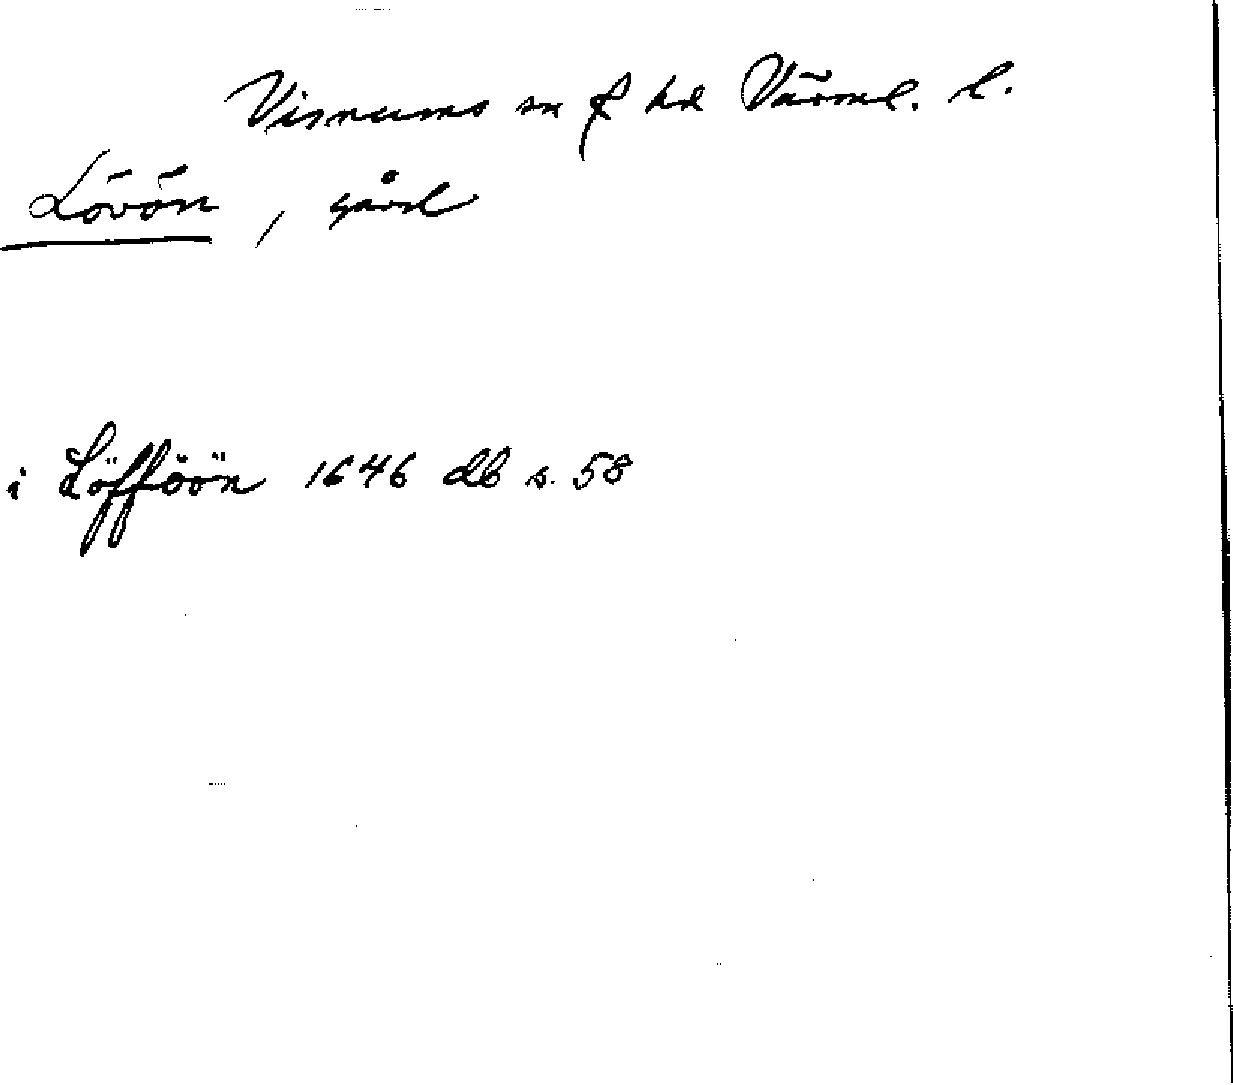 Visnums sn & hd Värml. l.
Lövön, gård
i Löfföön 1646 db s. 58